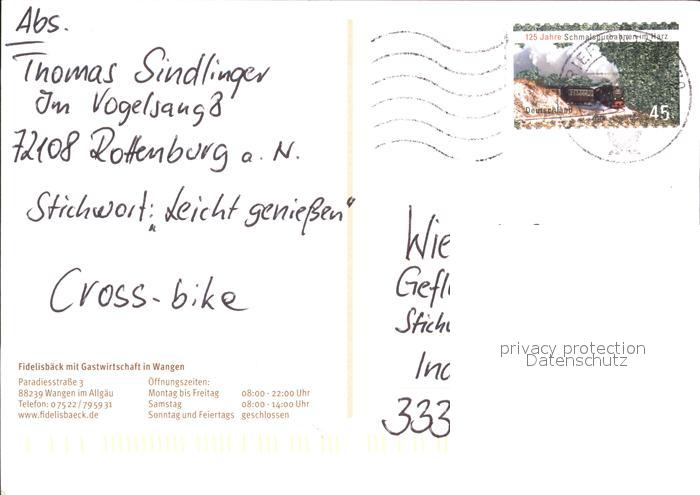 Abs.
Thomas Sindlinger
Im Vogelsang 8
72108 Rottenburg a. N.
Stichwort: „Leicht genießen“
Cross-bike
125 Jahre Schmalspurbahnen im Harz
Deutschland
45
Wie
Gefl
Stich
Ind
333
privacy protection
Datenschutz
Fidelisbäck mit Gastwirtschaft in Wangen
Paradiesstraße 3
88239 Wangen im Allgäu
Telefon: 0 75 22 / 79 59 31
www.fidelisbaeck.de
Öffnungszeiten:
Montag bis Freitag 08:00 - 22:00 Uhr
Samstag 08:00 - 14:00 Uhr
Sonntag und Feiertags geschlossen